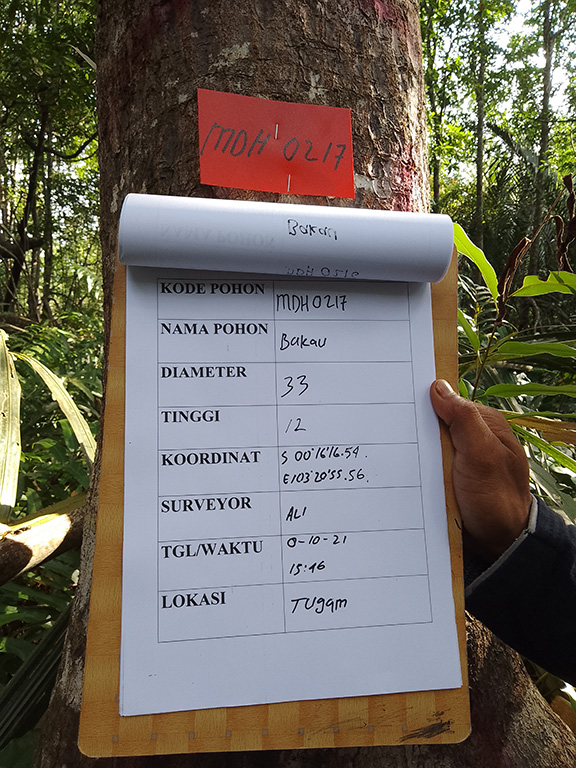 MDH 0217
Bakau
KODE POHON MDH 0217
NAMA POHON Bakau
DIAMETER 33
TINGGI 12
KOORDINAT S 00°16'16.54.
E103°20'55.56.
SURVEYOR ALI
TGL/WAKTU 0-10-21
15:46
LOKASI TUgam